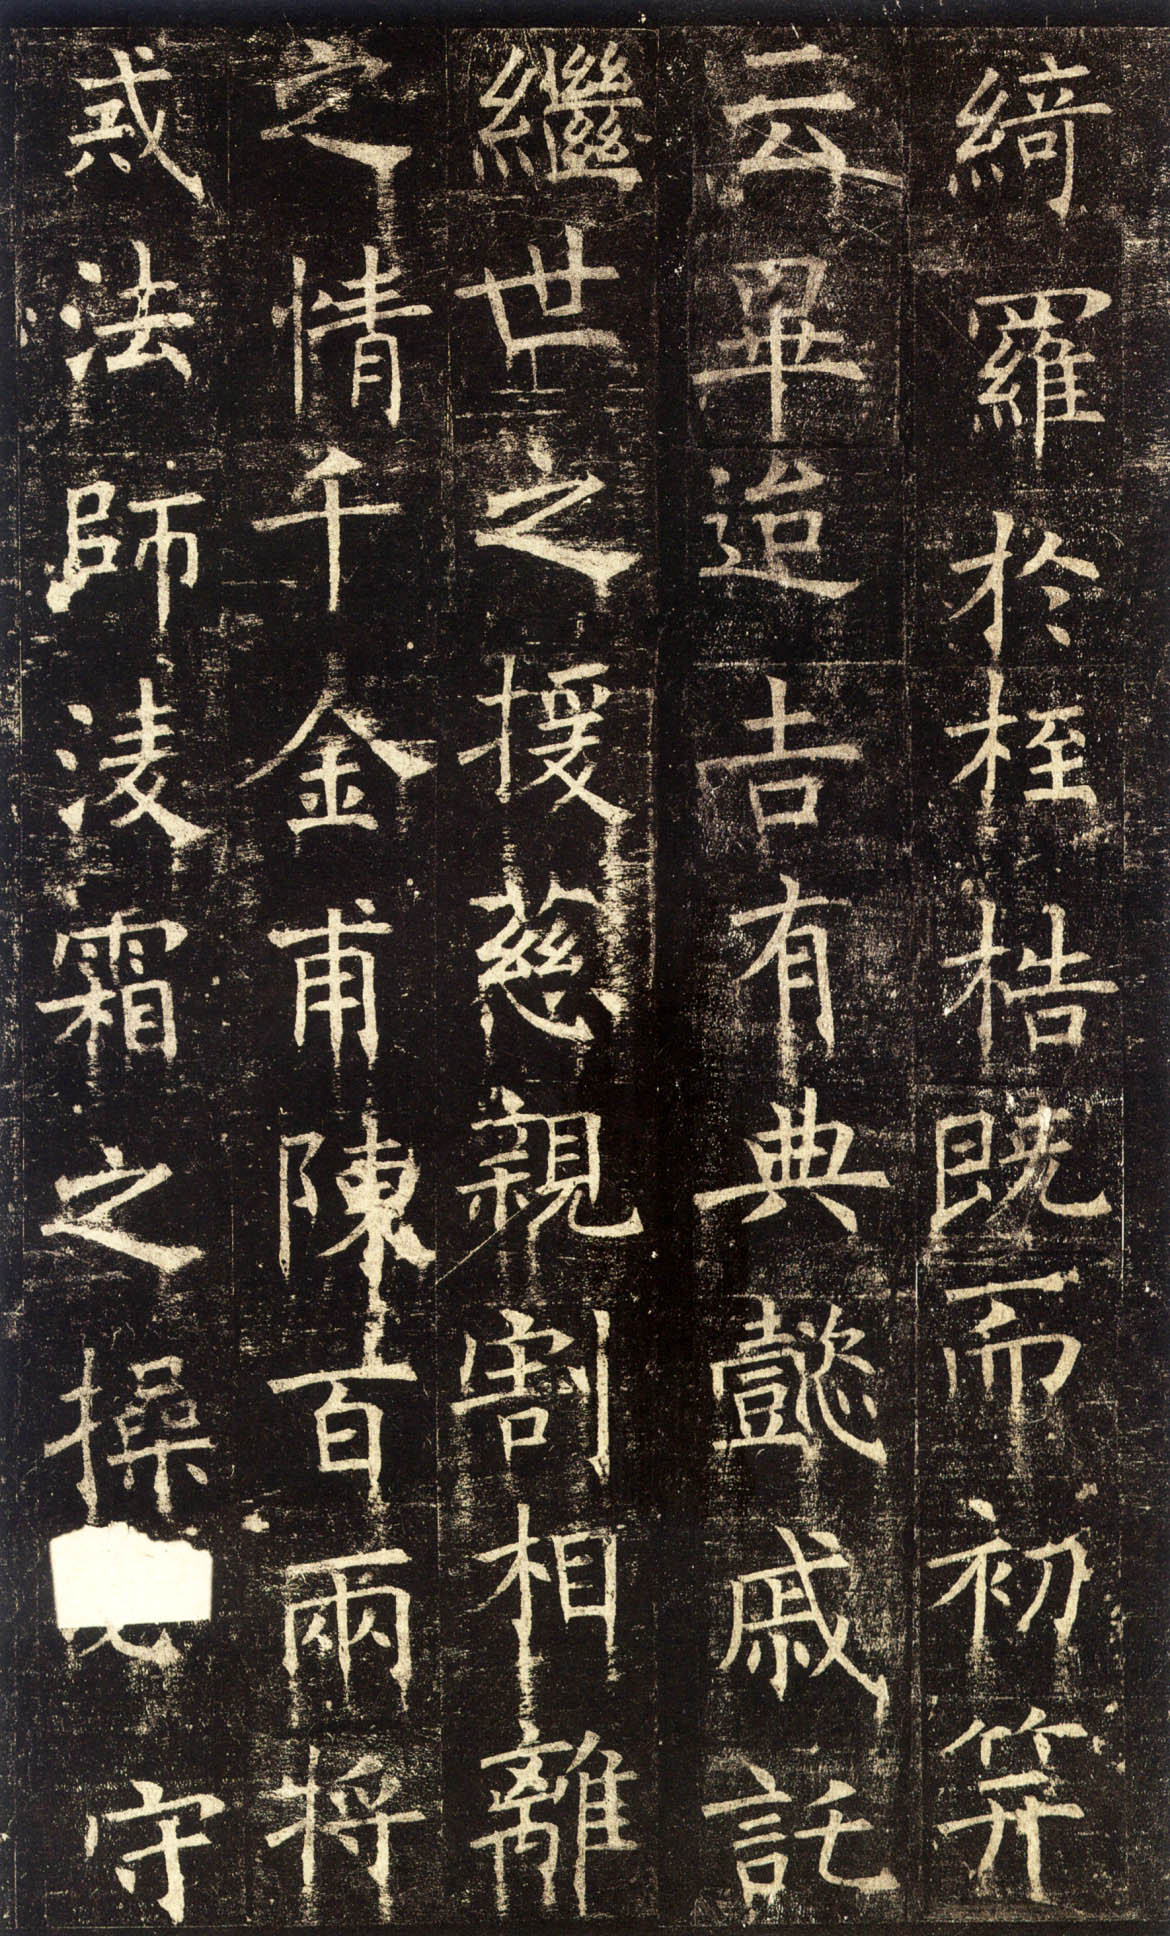 綺羅於桎梏既而初笄
云畢迨吉有典懿戚託
繼世之援慈親割相離
之情千金甫陳百兩将
戒法師淩霜之操
守